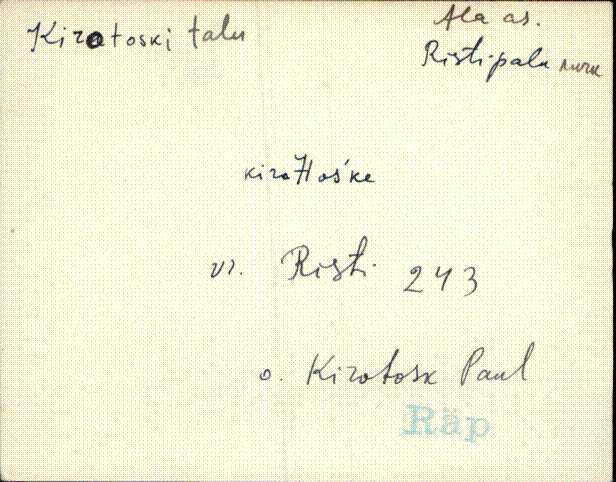 Kirotoski talu
Ala as.
Ristipalu nurk
kirottośke
vr. Risti 243
o. Kirotosk Paul
Räp